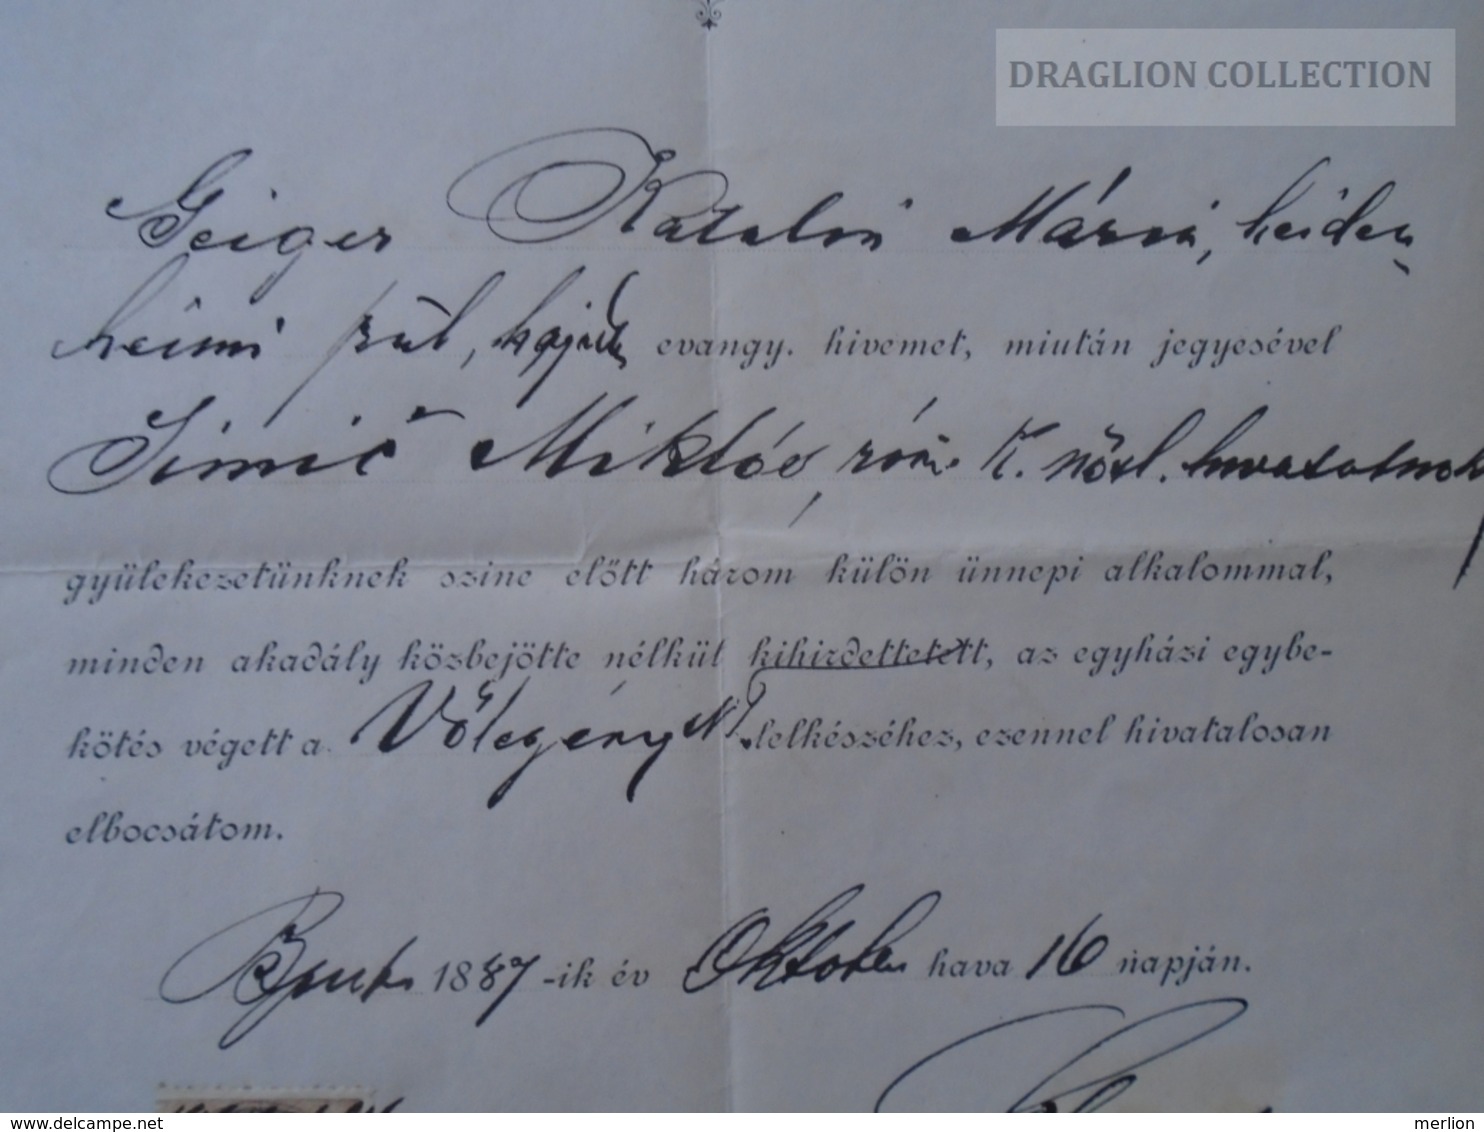 DRAGLION COLLECTION
Geiger Katalin Mária, heiden-
heimi szül, hajadon evangy. hivemet, miután jegyesével
Simič Miklós, róm. k. nősl. hivatalnok
gyülekezetünknek szine előtt három külön ünnepi alkalommal,
minden akadály közbejötte nélkül kihirdettetett, az egyházi egybe-
kötés végett a Vőlegény lelkészéhez, ezennel hivatalosan
elbocsátom.
Bpest 1887-ik év Oktober hava 16 napján.
www.delcampe.net
merlion